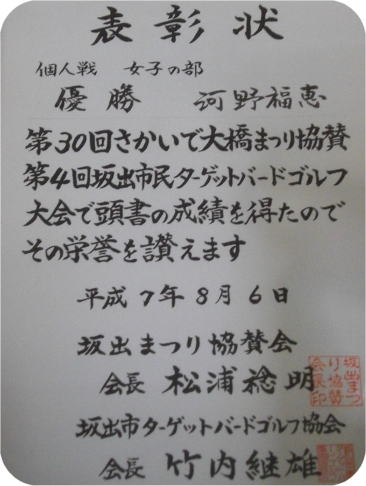 表彰状
個人戦 女子の部
優勝 河野福恵
第30回さかいで大橋まつり協賛
第4回坂出市民ターゲットバードゴルフ
大会で頭書の成績を得たので
その栄誉を讃えます
平成7年8月6日
坂出まつり協賛会
会長 松浦稔明
坂出まつり協賛会長印
坂出市ターゲットバードゴルフ協会
会長 竹内継雄